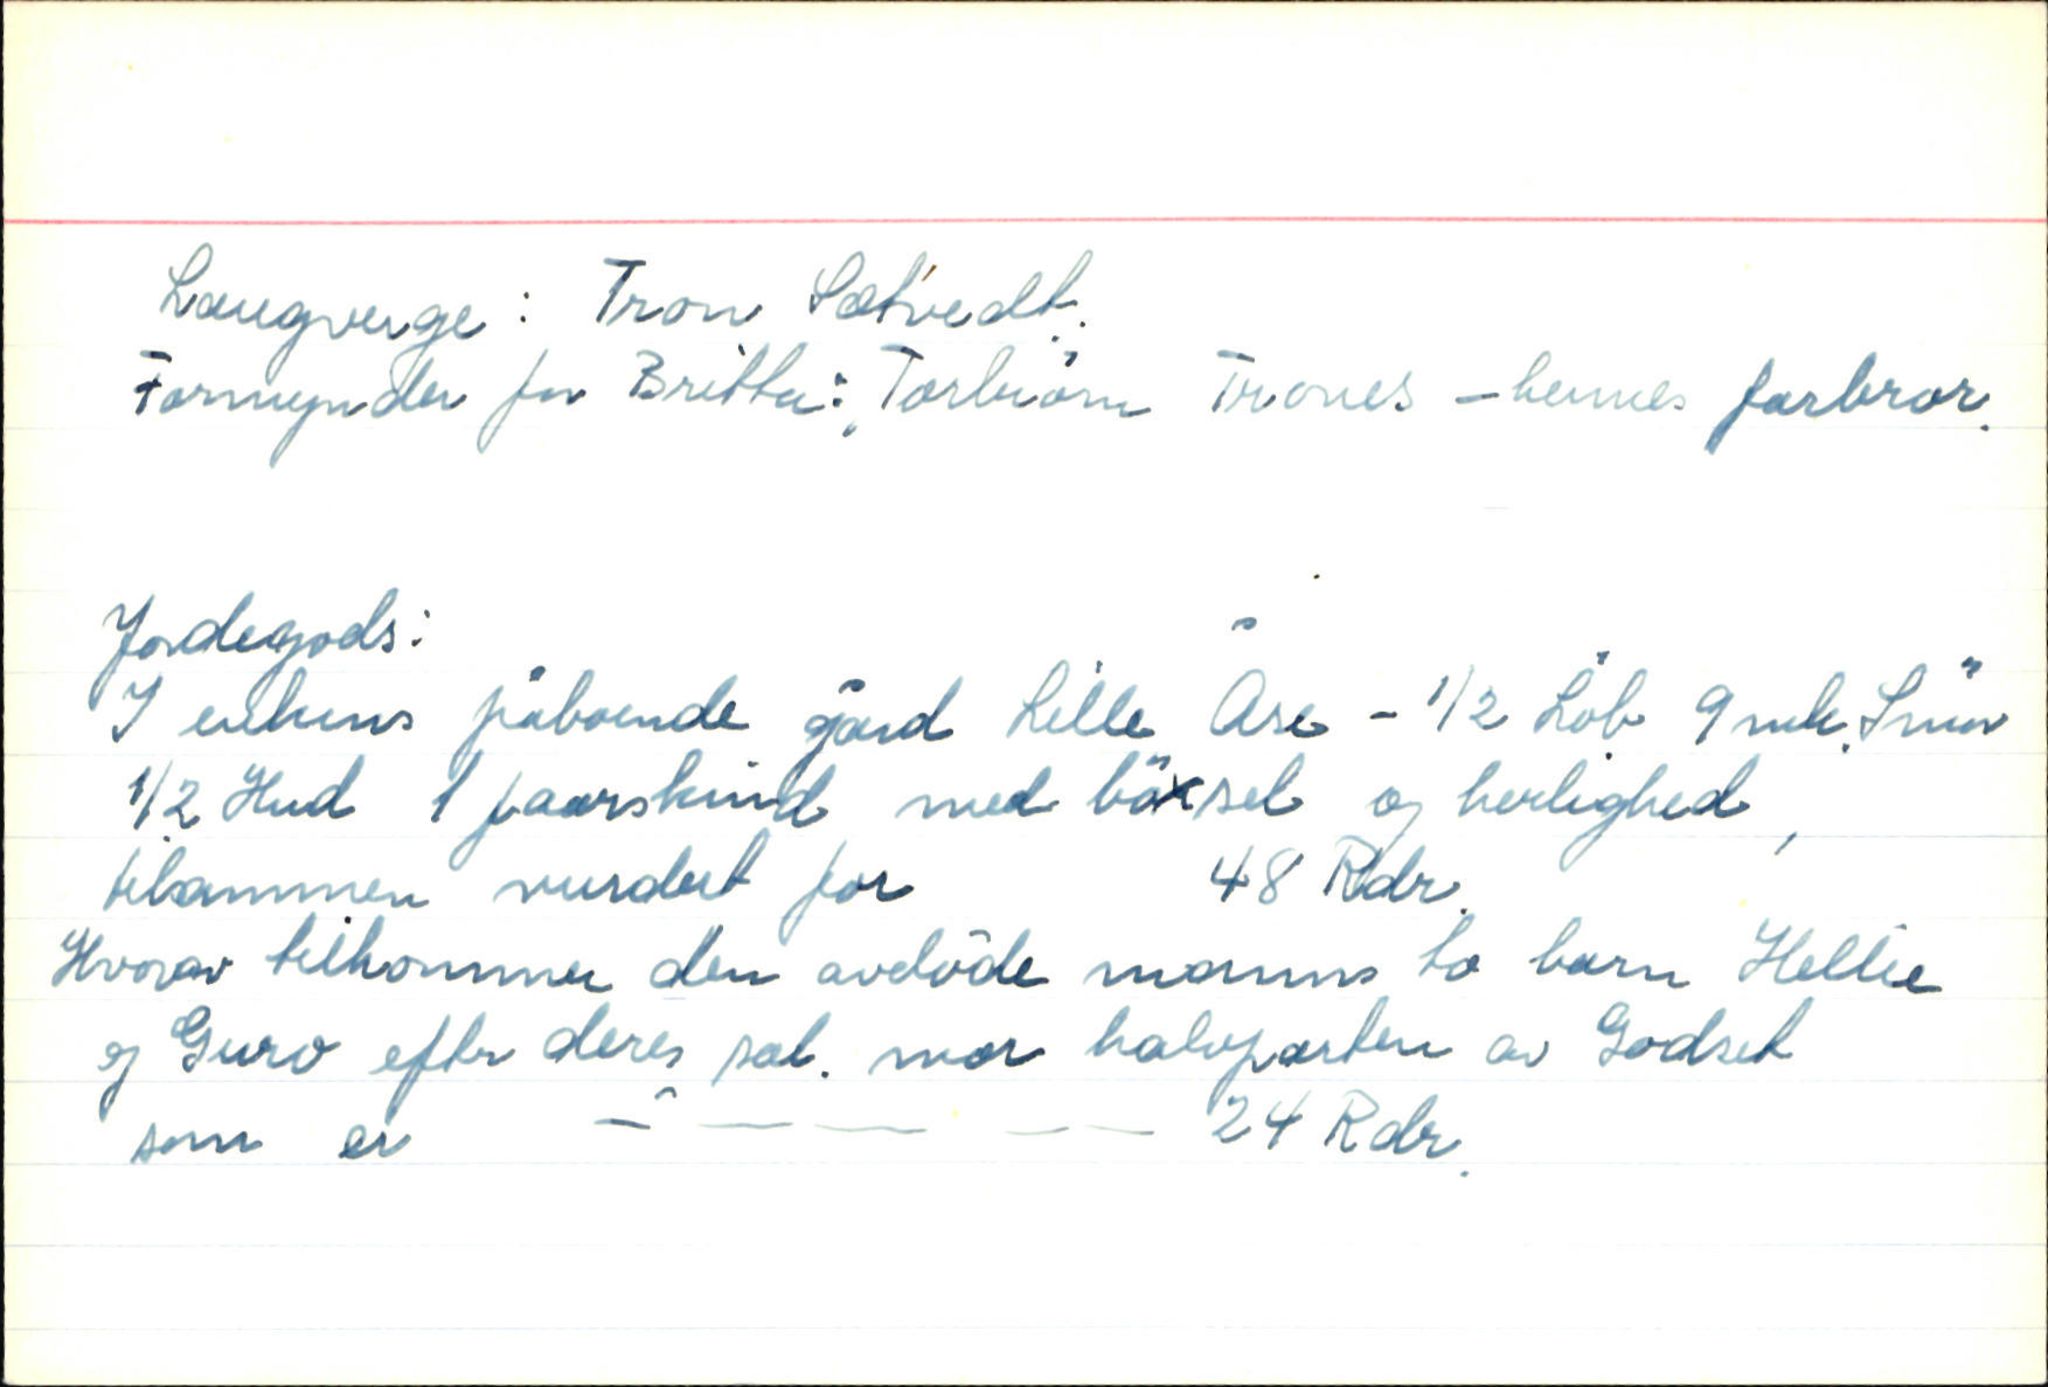 Laugverge: Tron Sætvedt.
Formynder for Britta: Torbiörn Trones - hennes farbror.
Jordegods:
I enkens påboende gård Lille Åse - 1/2 Löb 9 mk. Smör
1/2 Hud 1 faarskind med böxsel og herlighed,
tilsammen vurdert for 48 Rdr.
Hvorav tilkommer den avdöde manns to barn Hellie
og Guro efter deres sal. mor halvparten av Godset
som er - — — — — 24 Rdr.